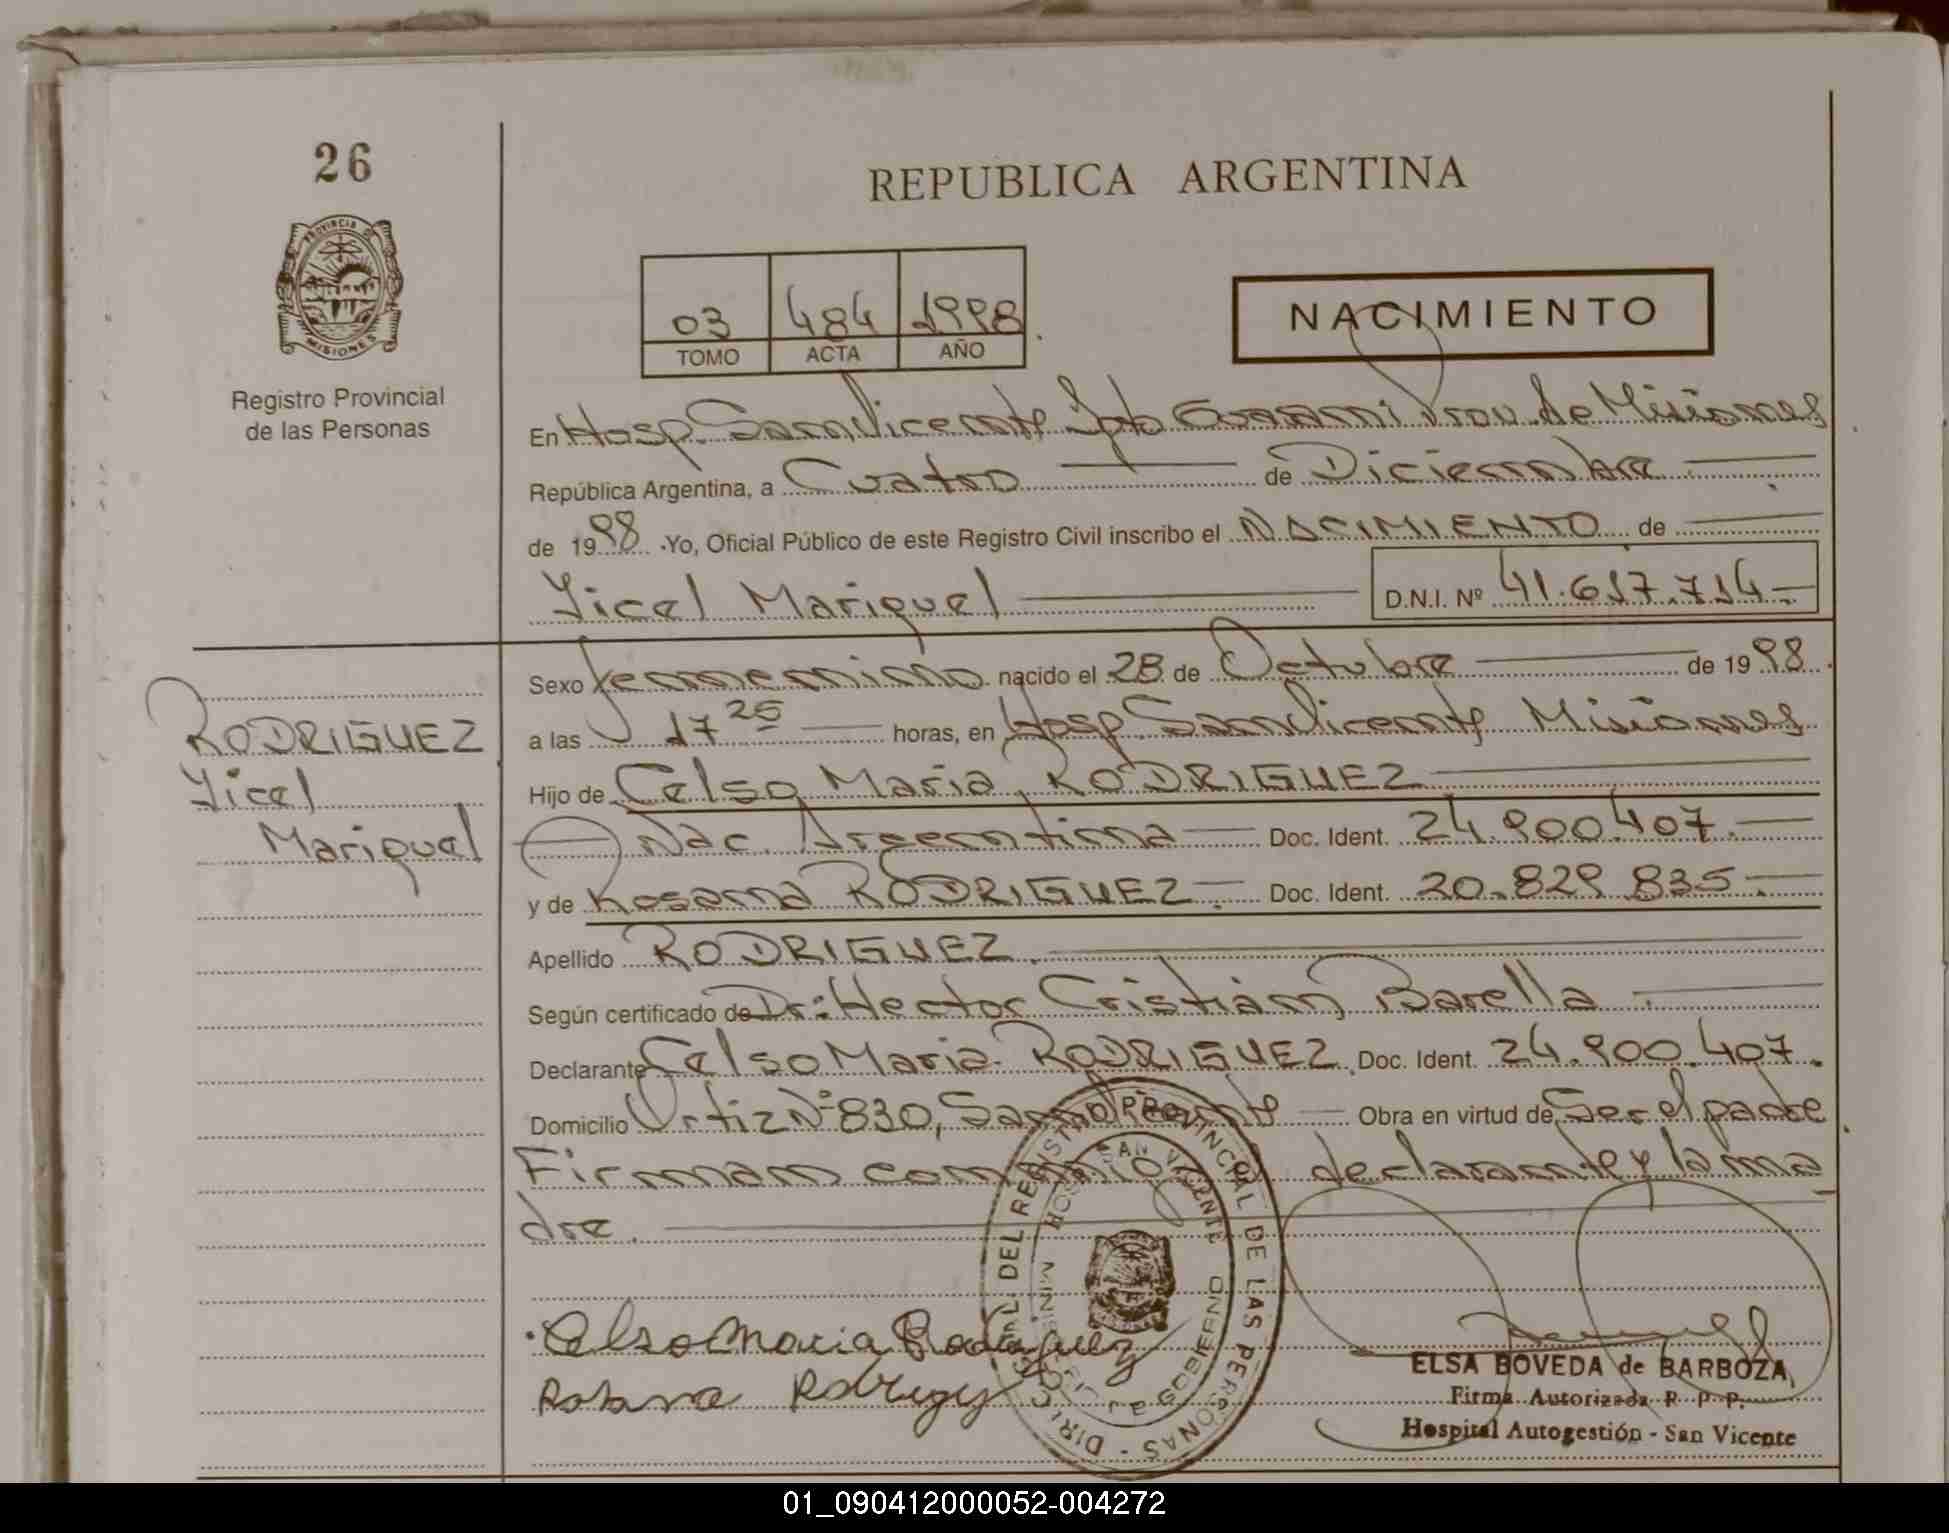 26
PROVINCIA DE
MISIONES
Registro Provincial
de las Personas
REPUBLICA ARGENTINA
03 484 1998
TOMO ACTA AÑO
NACIMIENTO
En Hosp. San Vicente Dpto Guarani Prov. de Misiones
República Argentina, a Cuatro de Diciembre
de 1998 Yo, Oficial Público de este Registro Civil inscribo el NACIMIENTO de
Yicel Mariquel D.N.I. Nº 41.617.714.
Sexo femenino nacido el 28 de Octubre de 1998.
a las 17 25 horas, en Hosp. San Vicente Misiones
Hijo de Celso Maria RODRIGUEZ
Nac. Argentina Doc. Ident. 24.900.407.
y de Rosana RODRIGUEZ. Doc. Ident. 20.829.835.
Apellido RODRIGUEZ.
Según certificado de Dr: Hector Cristian Barella
Declarante Celso Maria RODRIGUEZ Doc. Ident. 24.900.407.
Domicilio Ortiz Nº 830, San Vicente Obra en virtud de Ser el padre
Firman conmigo declarante y la ma
dre.
RODRIGUEZ
Yicel
Mariquel
Celso Maria Rodriguez
DEL REGISTRO PROVINCIAL DE LAS PERSONAS
SAN VICENTE
GOBIERNO
ELSA BOVEDA de BARBOZA
Firma Autorizada R. P. P.
Hospital Autogestión - San Vicente
01_090412000052-004272